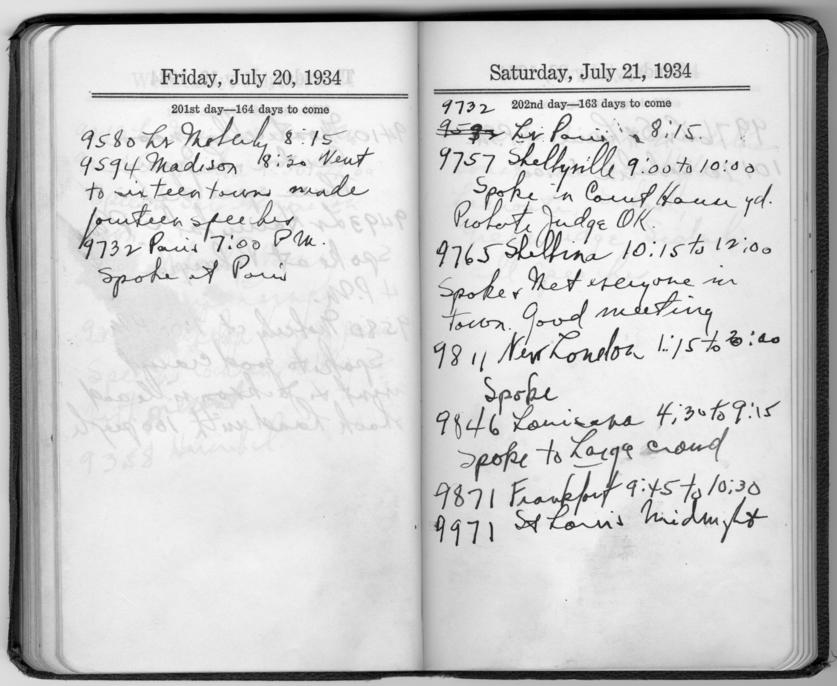 Friday, July 20, 1934
201st day—164 days to come
9580 Lv Moberly 8:15
9594 Madison 8:30 Went
to sixteen towns made
fourteen speeches
9732 Paris 7:00 P.M.
Spoke at Paris
Saturday, July 21, 1934
202nd day—163 days to come
9732
Lv Paris 8:15.
9757 Shelbyville 9:00 to 10:00
Spoke in Court House yd.
Probate Judge OK.
9765 Shelbina 10:15 to 12:00
Spoke & Met everyone in
town. Good meeting
9811 New London 1:15 to :00
Spoke
9846 Louisana 4:30 to 9:15
Spoke to Large crowd
9871 Frankfort 9:45 to 10:30
9971 St Louis Midnight